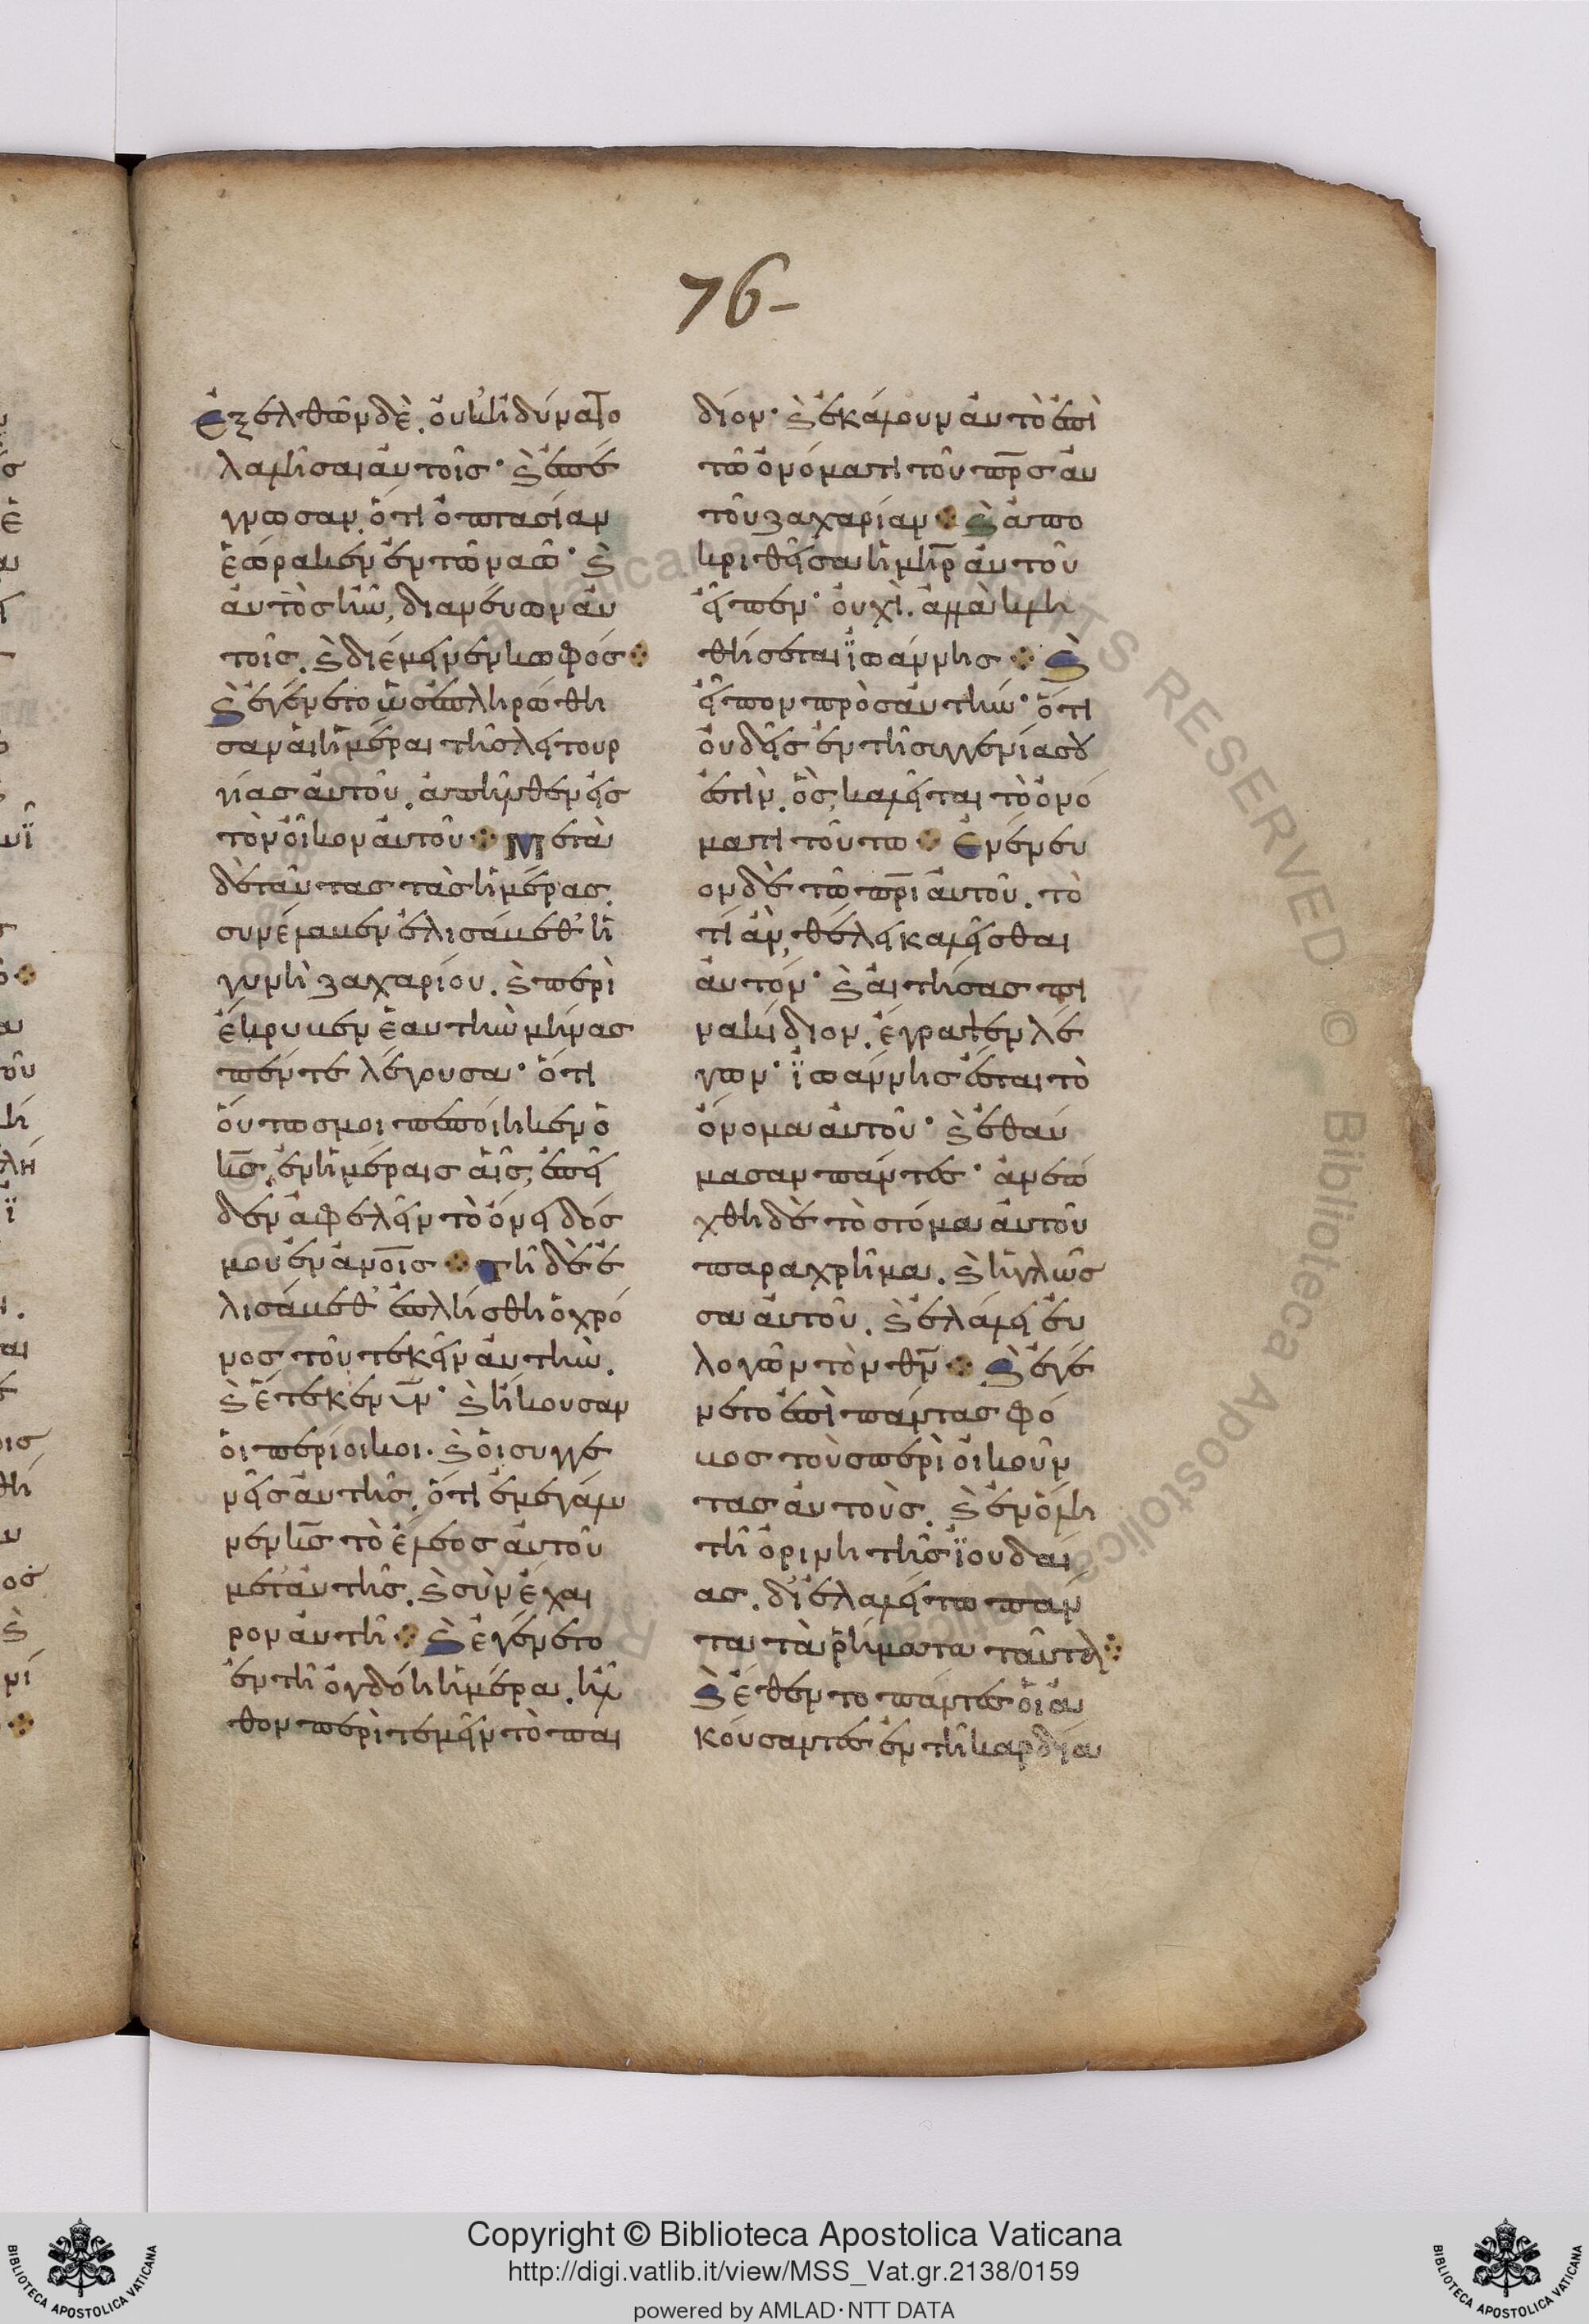 76-
Ἐξελθὼν δὲ. οὐκ ἠδύνατο
λαλῆσαι αὐτοῖς· ϗ ἐπέ
γνωσαν. ὅτι ὀπτασίαν
ἑώρακεν ἐν τῷ ναῷ· ϗ
αὐτὸς ἦν, διανεύων αὐ
τοῖς. ϗ διέμεινεν κωφός ⁘
ϗ ἐγένετο ὡς ἐπληρώθη
σαν αἱ ἡμέραι τῆς λειτουρ
γίας αὐτοῦ. ἀπῆλθεν εἰς
τὸν οἶκον αὐτοῦ ⁘ Μετὰ
δὲ ταύτας τὰς ἡμέρας.
συνέλαβεν ἐλισάβεθ ἡ
γυνὴ ζαχαρίου. ϗ περι
έκρυβεν ἑαυτὴν μῆνας
πέντε λέγουσα· ὅτι
οὕτως μοι πεποίηκεν ὁ
κς̅. ἐν ἡμέραις αἷς, ἐπεῖ
δεν ἀφελεῖν τὸ ὄνειδός
μου ἐν ἀνοῖς̅ ⁘ τῇ δὲ ἐ
λισάβεθ ἐπλήσθη ὁ χρό
νος τοῦ τεκεῖν αὐτήν.
ϗ ἔτεκεν υν̅· ϗ ἤκουσαν
οἱ περίοικοι. ϗ οἱ συγγε
νεῖς αὐτῆς. ὅτι ἐμεγάλυ
νεν κς̅ τὸ ἔλεος αὐτοῦ
μετ' αὐτῆς. ϗ συνέχαι
ρον αὐτῇ ⁘ ϗ ἐγένετο
ἐν τῇ ὀγδόῃ ἡμέρα. ἦλ
θον περιτεμεῖν τὸ παι
δίον· ϗ ἐκάλουν αὐτὸ ἐπὶ
τῷ ὀνόματι τοῦ πρς̅ αὐ
τοῦ ζαχαρίαν ⁘ ϗ ἀπο
κριθεῖσα ἡ μηρ̅ αὐτοῦ
εἶπεν· οὐχὶ. ἀλλὰ κλη
θήσεται ἰωάννης ⁘ ϗ
εἶπον πρὸς αὐτήν· ὅτι
οὐδεὶς ἐν τῇ συγγενίᾳ σου
ἐστὶν. ὃς, καλεῖται τὸ ὀνό
ματι τούτω ⁘ Ἐνένευ
ον δὲ τῷ πρι̅ αὐτοῦ. τὸ
τί ἂν, θέλει καλεῖσθαι
αὐτόν· ϗ αἰτήσας πι
νακίδιον. ἔγραψεν λέ
γων· ἰωάννης ἔσται τὸ
ὄνομα αὐτοῦ· ϗ ἐθαύ
μασαν πάντες· ἀνεῴ
χθη δὲ τὸ στόμα αὐτοῦ
παραχρῆμα. ϗ ἡ γλῶσ
σα αὐτοῦ. ϗ ἐλάλει εὐ
λογῶν τὸν θν̅ ⁘ ϗ ἐγέ
νετο ἐπὶ πάντας φό
βος τοὺς περὶ οἰκοῦν
τας αὐτοὺς. ϗ ἐν ὅλη
τῇ ὀρινῆ τῆς ἰουδαί
ας. δι' ἐλαλεῖτο πάν
τα τὰ ῥήματα ταῦτα ⁘
ϗ ἔθεντο πάντες οἱ ἀ
κούσαντες ἐν τῇ καρδία
Copyright © Biblioteca Apostolica Vaticana
http://digi.vatlib.it/view/MSS_Vat.gr.2138/0159
powered by AMLAD·NTT DATA
BIBLIOTECA APOSTOLICA VATICANA
BIBLIOTECA APOSTOLICA VATICANA